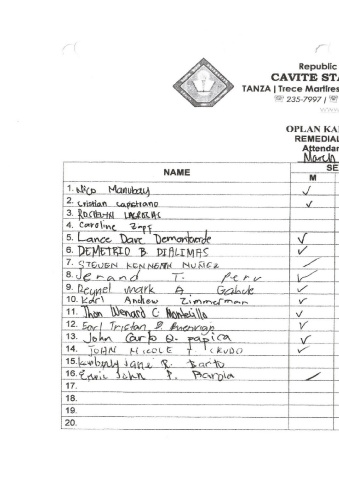 Republic
CAVITE STA
TANZA | Trece Martires
☏ 235-7997 | ☏
www.
OPLAN KA
REMEDIAL
Attendan
March
NAME SE
M
1. Nico Manubay ✓
2. Cristian Capistrano ✓
3.
4. Caroline
5. Lance Dave Demonteverde ✓
6. DEMETRIO B. DIALIMAS ✓
7. STEVEN KENNETH NUÑEZ ✓
8. Jerand T. ✓
9. Reynel Mark A. ✓
10. Karl Andrew Zimmerman ✓
11. Jhon Wenard C. ✓
12. Earl Tristan ✓
13. John Carlo O. Papica ✓
14. JOHN NICOLE T. ✓
15. Kimberly Jane R. Barto
16. Erwin John P. Barola ✓
17.
18.
19.
20.